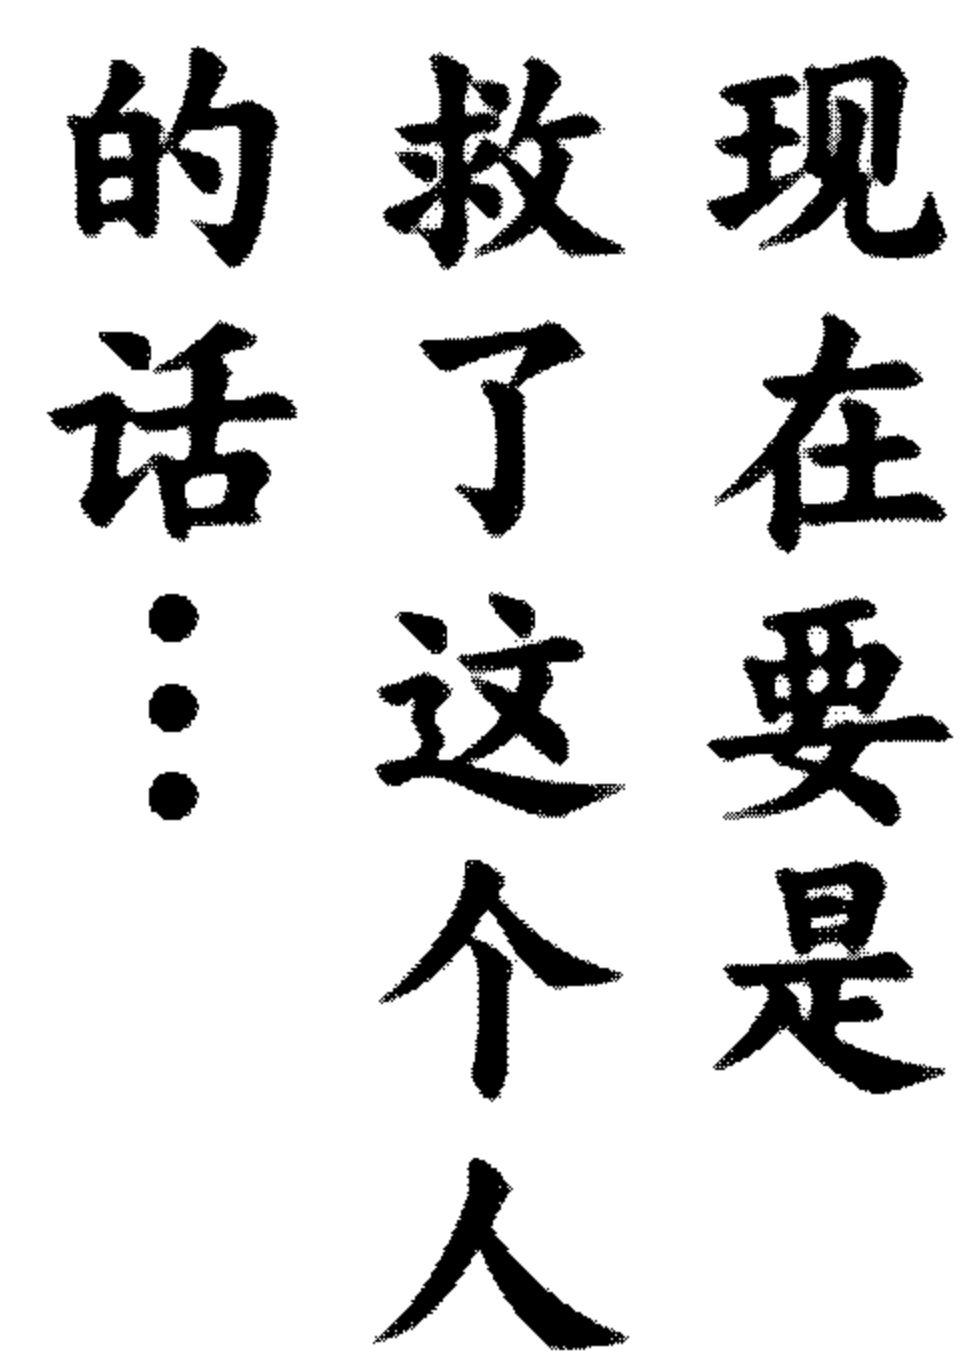 现在要是
救了这个人
的话…